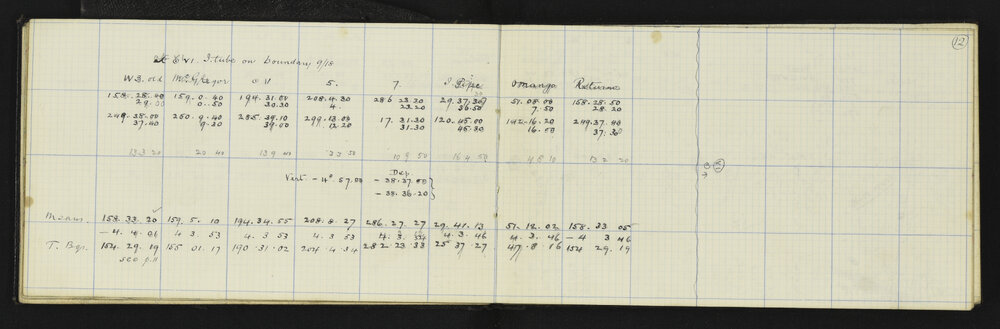 12
At E VI. I. tube on boundary 9/18
W.S. old McGregor O V 5. 7. I Pipe Omanga Return
158. 28. 40 159. 0. 40 194. 31. 00 208. 4. 30 286 23. 30 29. 37. 30 51. 08. 00 158. 28. 50
29. 00 0. 50 30. 30 4. 23. 20 36. 50 7. 50 28. 20
249. 38. 00 250. 9. 40 285. 39. 10 299. 13. 00 17. 31. 30 120. 45. 00 142. 16. 20 249. 37. 40
37. 40 9. 30 39. 00 12. 20 31. 30 45. 30 16. 00 37. 30
13 3 20 20 40 13 9 40 33 50 10 9 50 16 4 50 4 8 10 13 2 20
Dep
Vert - 4° 57. 00 - 38. 37. 00
- 38. 36. 20
Means. 158. 33. 20 159. 5. 10 194. 34. 55 208. 8. 27 286. 27. 27 29. 41. 13 51. 12. 02 158. 33 05
- 4. 4. 01 4 3. 53 4. 3 53 4. 3 53 4. 3. 54 4. 3. 46 4. 3. 46 - 4 3 46
T. Bgs. 154. 29. 19 155 01. 17 190. 31. 02 204. 4. 34 282 23. 33 25 37. 27. 47. 8 16 154 29. 19
see p. 11